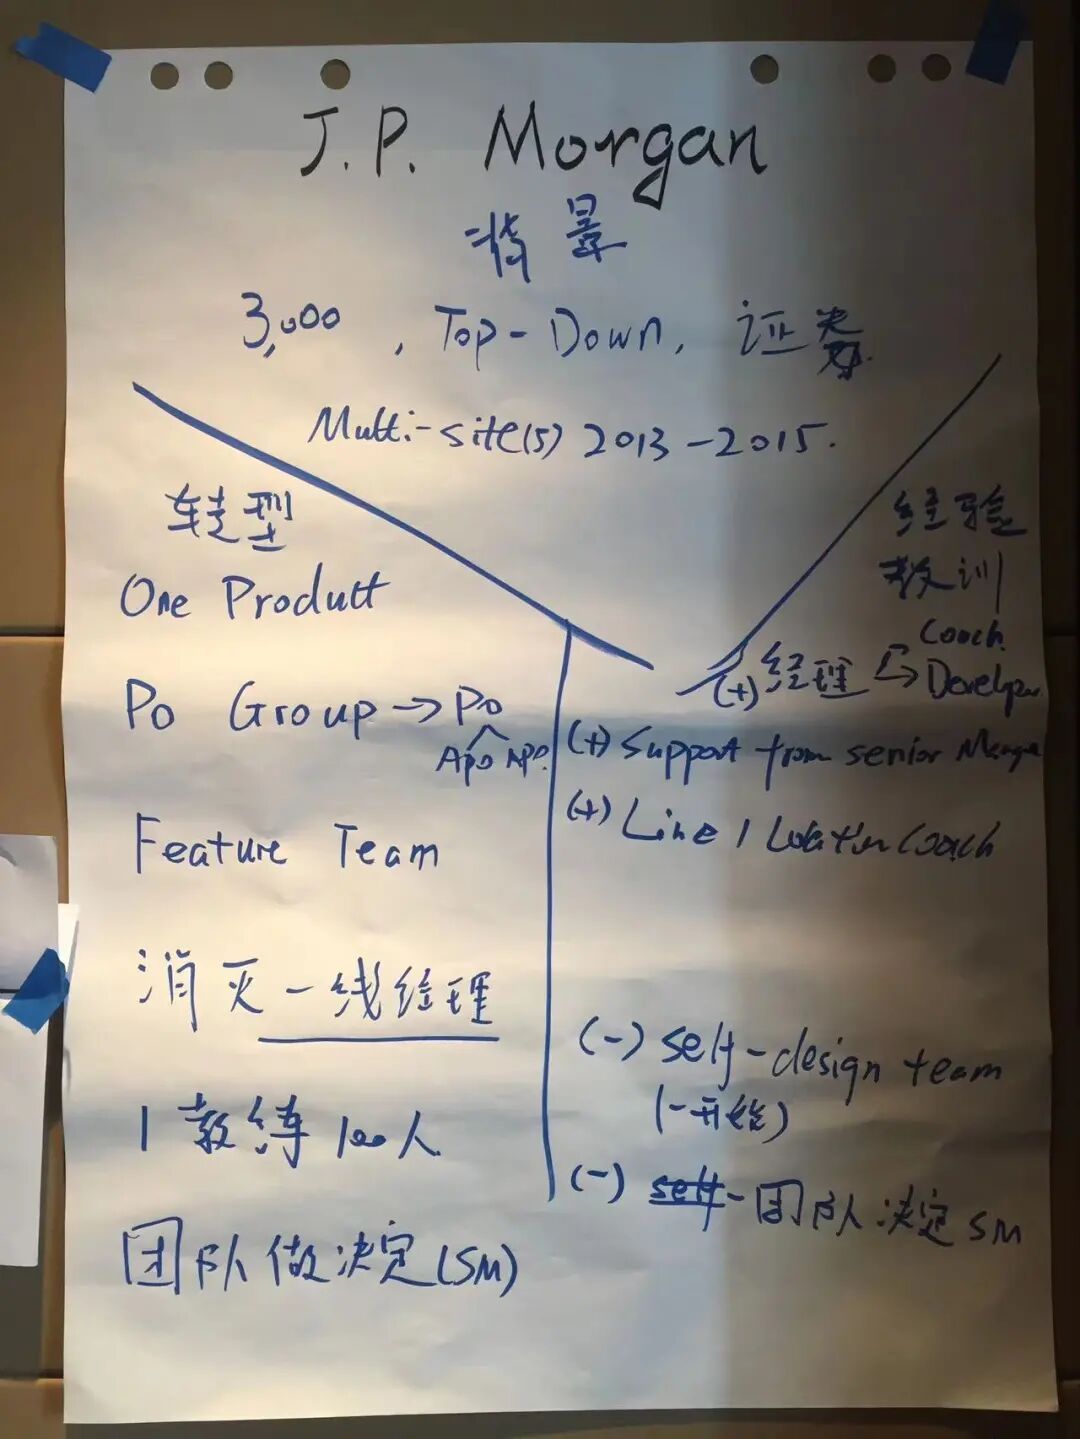 J.P. Morgan
背景
3,000, Top-Down, 证券
Multi-site(5) 2013-2015.
转型
One Product
Po Group → Po
APO APO
Feature Team
消灭一线经理
1 教练 100人
团队做决定(SM)
经验
教训
(+) 经理 → Coach
Developer
(+) Support from senior
(+) Line / Coach
(-) self-design team
(一开始)
(-) self-团队决定SM